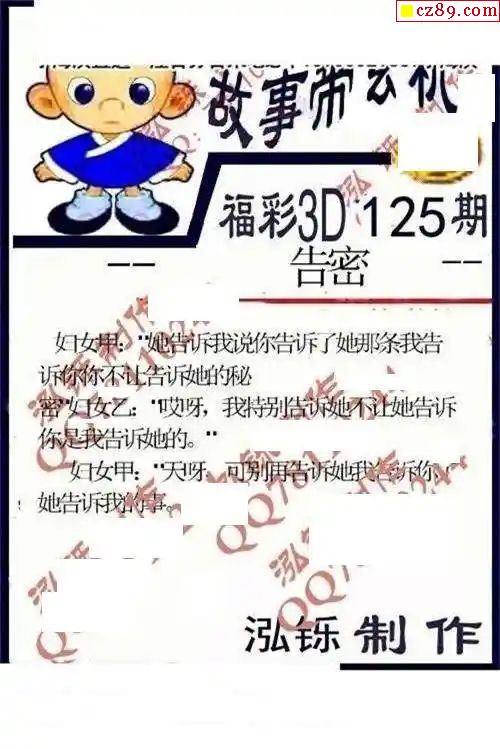 cz89.com
故事带玄机
福彩3D 125期
-- 告密 --
妇女甲："她告诉我说你告诉了她那条我告
诉你你不让告诉她的秘
密"妇女乙："哎呀，我特别告诉她不让她告诉
你是我告诉她的。"
妇女甲："天呀，可别再告诉她我告诉你，
她告诉我的事。
泓铄制作